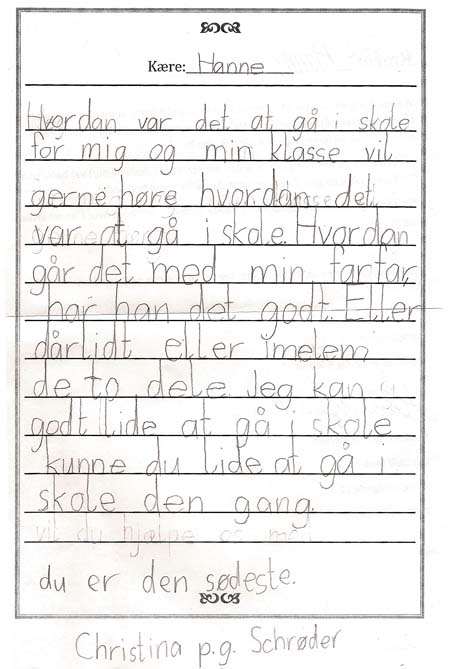 Kære: Hanne
Hvordan var det at gå i skole
for mig og min klasse vil
gerne høre hvordan det
var at gå i skole. Hvordan
går det med min farfar,
har han det godt. Eller
dårlidt eller imelem
de to dele. Jeg kan
godt lide at gå i skole
kunne du lide at gå i
skole den gang.
vil du hjælpe os m
du er den sødeste.
Christina p.g. Schrøder